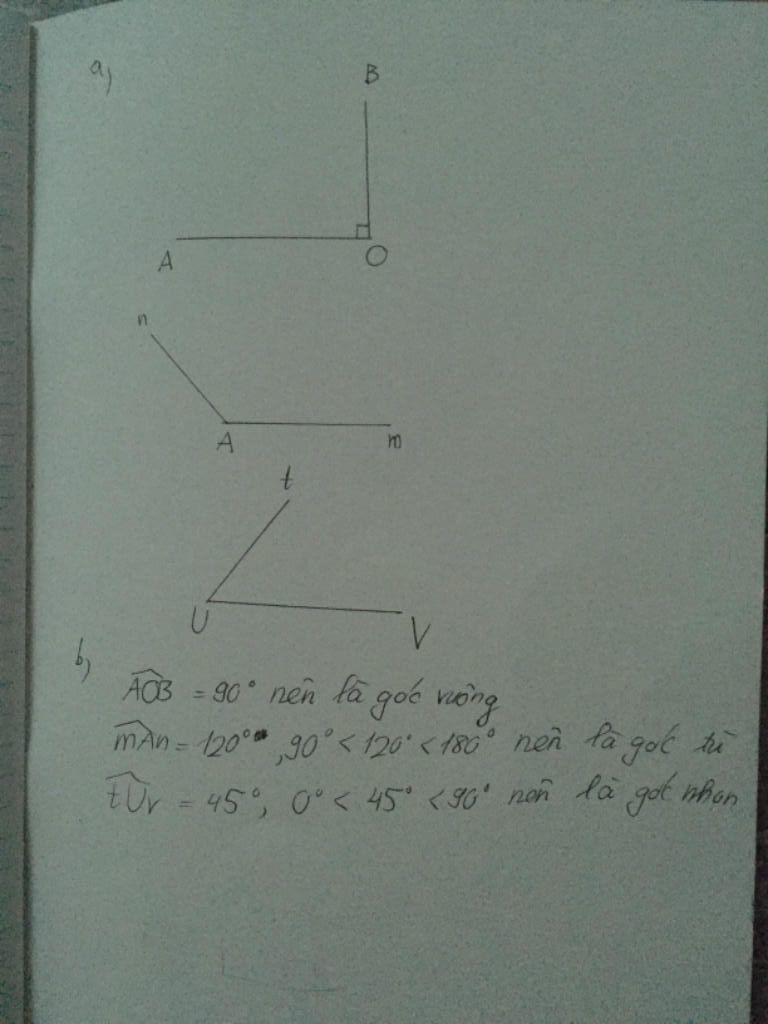 a)
B
A
O
n
A
m
t
U
V
b)
AOB = 90° nên là góc vuông
mAn = 120°, 90° < 120° < 180° nên là góc tù
tUv = 45°, 0° < 45° < 90° nên là góc nhọn